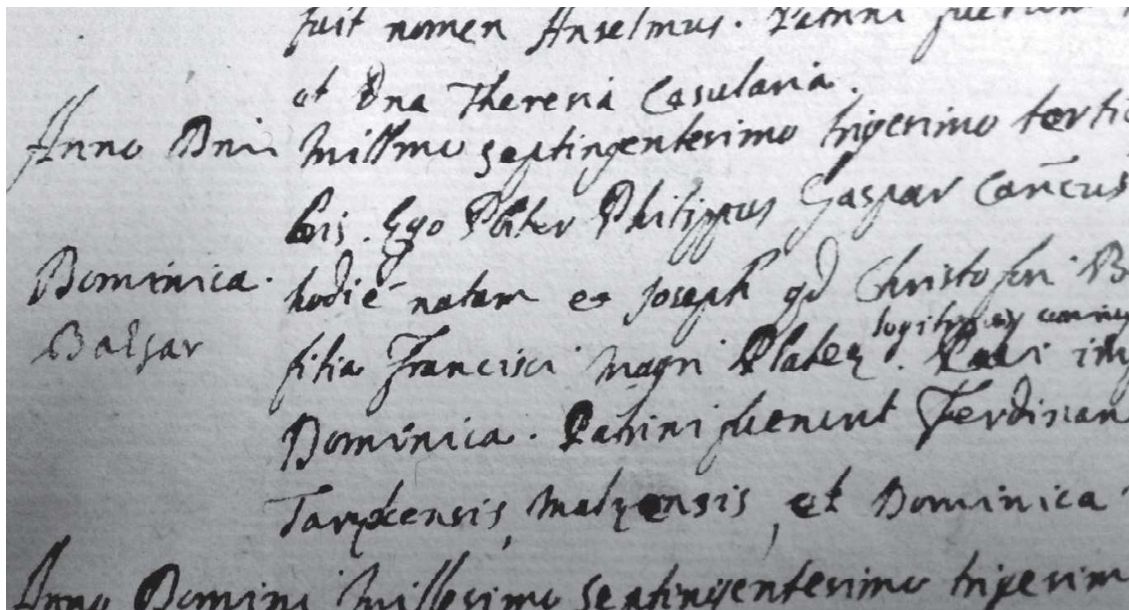 fuit nomen Anselmus. Patrini fuerunt
et Dna Theresia Casularia.
Anno Dni Millmo septingentesimo trigesimo tertio
bris. Ego Pater Philippus Gaspar Can̄cus
Dominica. hodie natam ex Joseph qd Christofori B
Balzar filia Francisci Magri Platey legitimis coniug
Dominica. Patrini fuerunt Ferdinan
Tarxensis, et Dominica
Anno Domini Millesimo septingentesimo trigesim